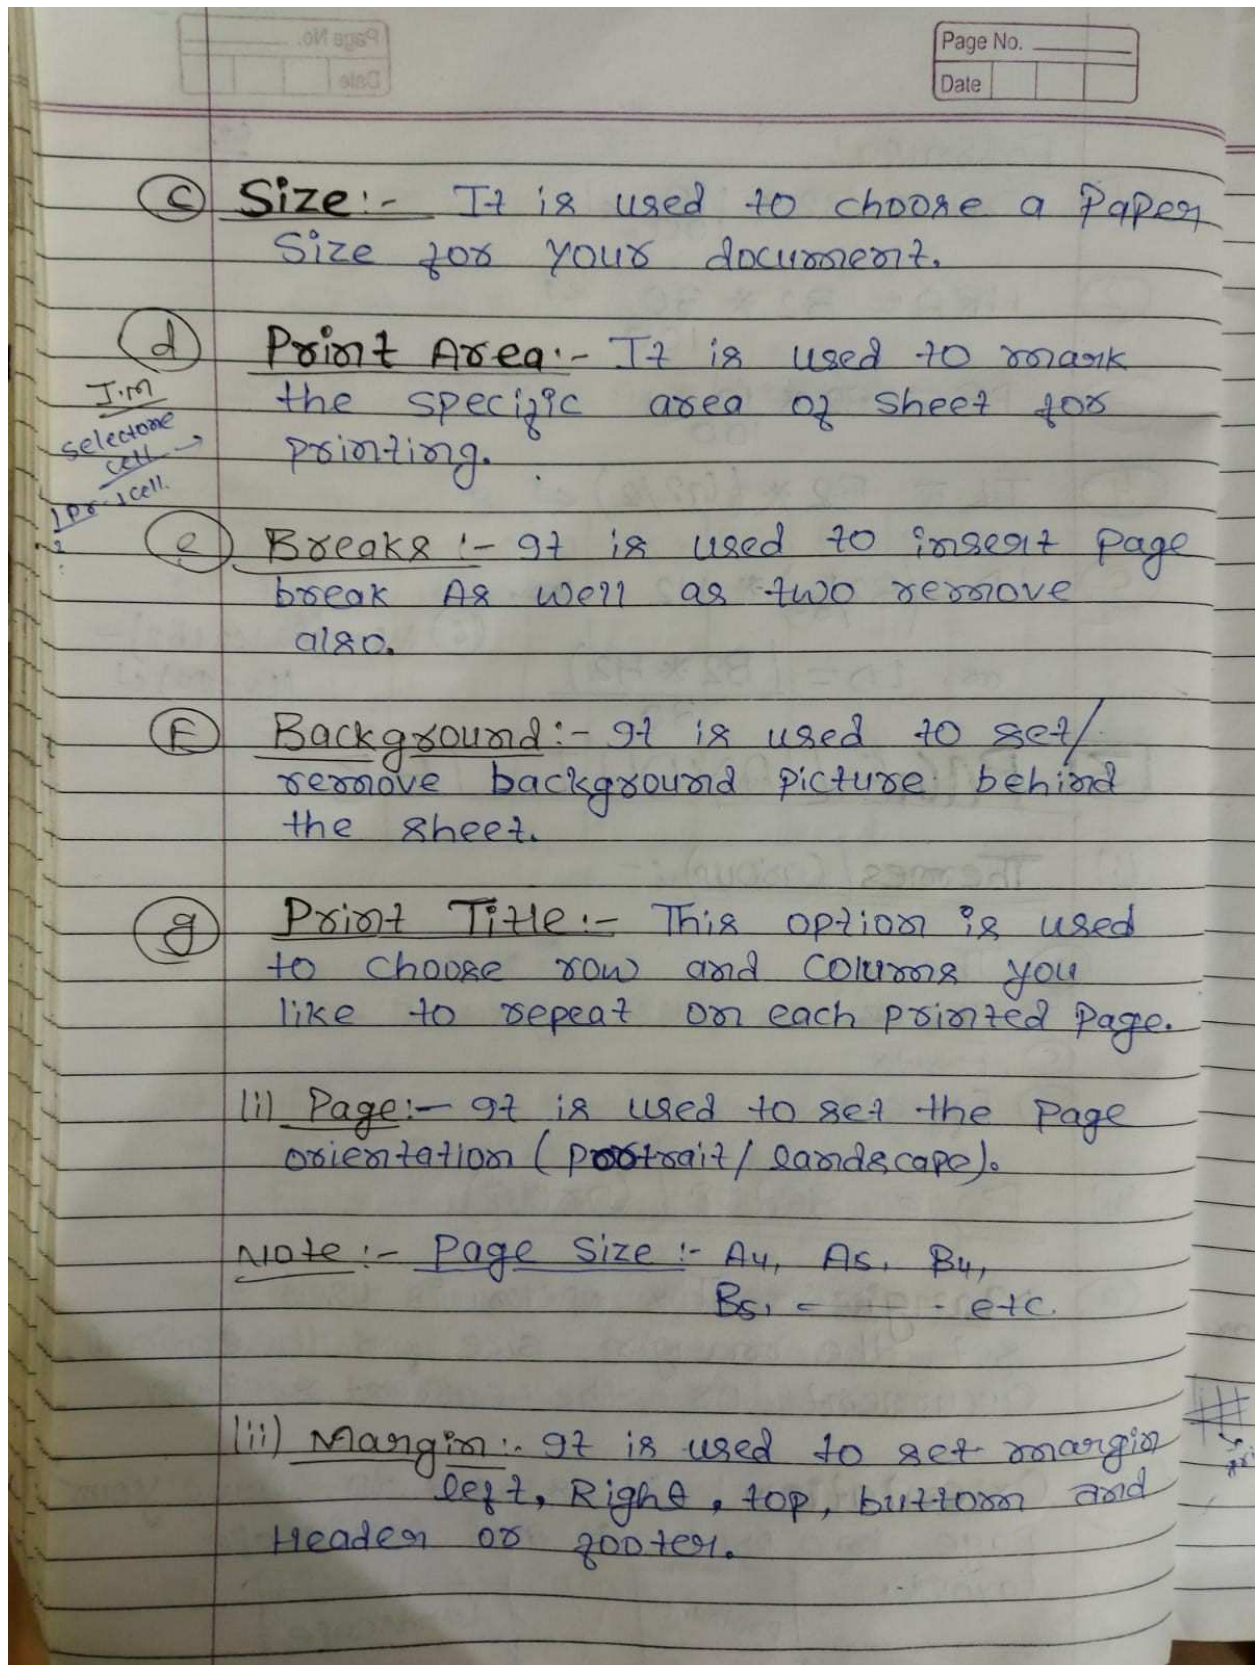 Page No.
Date
(c) Size:- It is used to choose a Paper
Size for your document.
(d) Print Area:- It is used to mark
the specific area of sheet for
printing.
I.M
select one
cell →
1 pr 1 cell.
(e) Breaks :- It is used to insert page
break As well as two remove
also.
(F) Background:- It is used to set/
remove background picture behind
the sheet.
(g) Print Title:- This option is used
to choose row and columns you
like to repeat on each printed page.
(i) Page:- It is used to set the page
orientation (portrait/landscape).
Note:- Page Size :- A4, A5, B4,
B5, - - - etc.
(ii) Margin:- It is used to set margin
left, Right, top, buttom and
Header or footer.